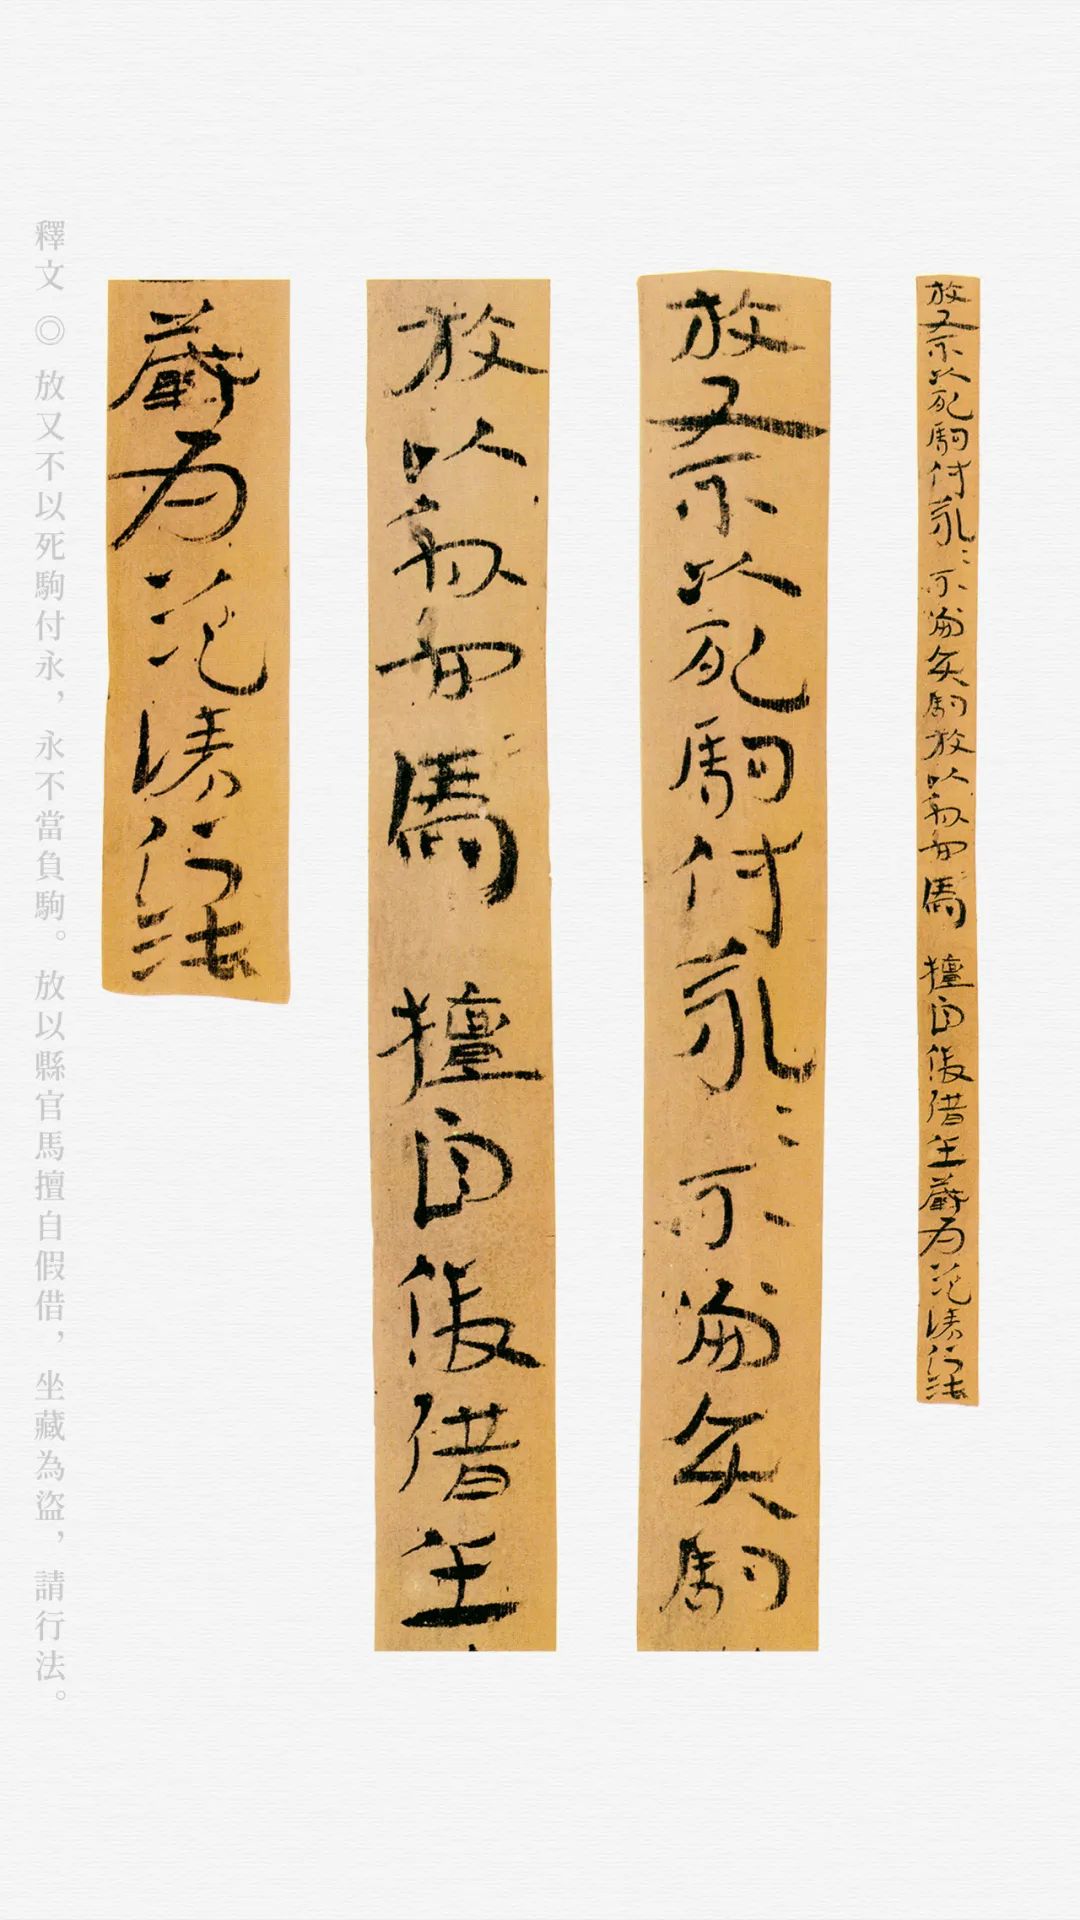 放又不以死駒付永〻不當負駒放以縣官馬擅自假借坐藏為盜請行法
放又不以死駒付永〻不當負駒
放以縣官馬擅自假借坐
藏為盜請行法
釋文◎放又不以死駒付永，永不當負駒。放以縣官馬擅自假借，坐藏為盜，請行法。